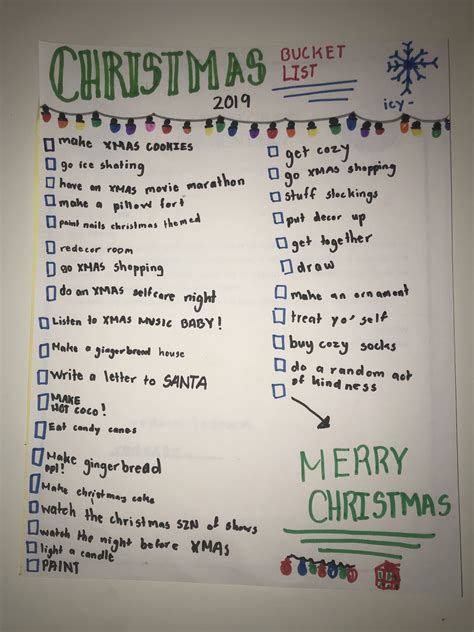 CHRISTMAS BUCKET LIST
2019
icy-
make XMAS COOKIES
go ice skating
have an XMAS movie marathon
make a pillow fort
paint nails christmas themed
redecor room
go XMAS shopping
do an XMAS selfcare night
Listen to XMAS MUSIC BABY!
Make a gingerbread house
Write a letter to SANTA
MAKE
HOT COCO!
Eat candy canes
Make gingerbread
ppl!
Make christmas cake
watch the christmas SZN of shows
watch the night before XMAS
light a candle
PAINT
get cozy
go XMAS shopping
stuff stockings
put decor up
get together
draw
make an ornament
treat yo'self
buy cozy socks
do a random act
of kindness
MERRY
CHRISTMAS